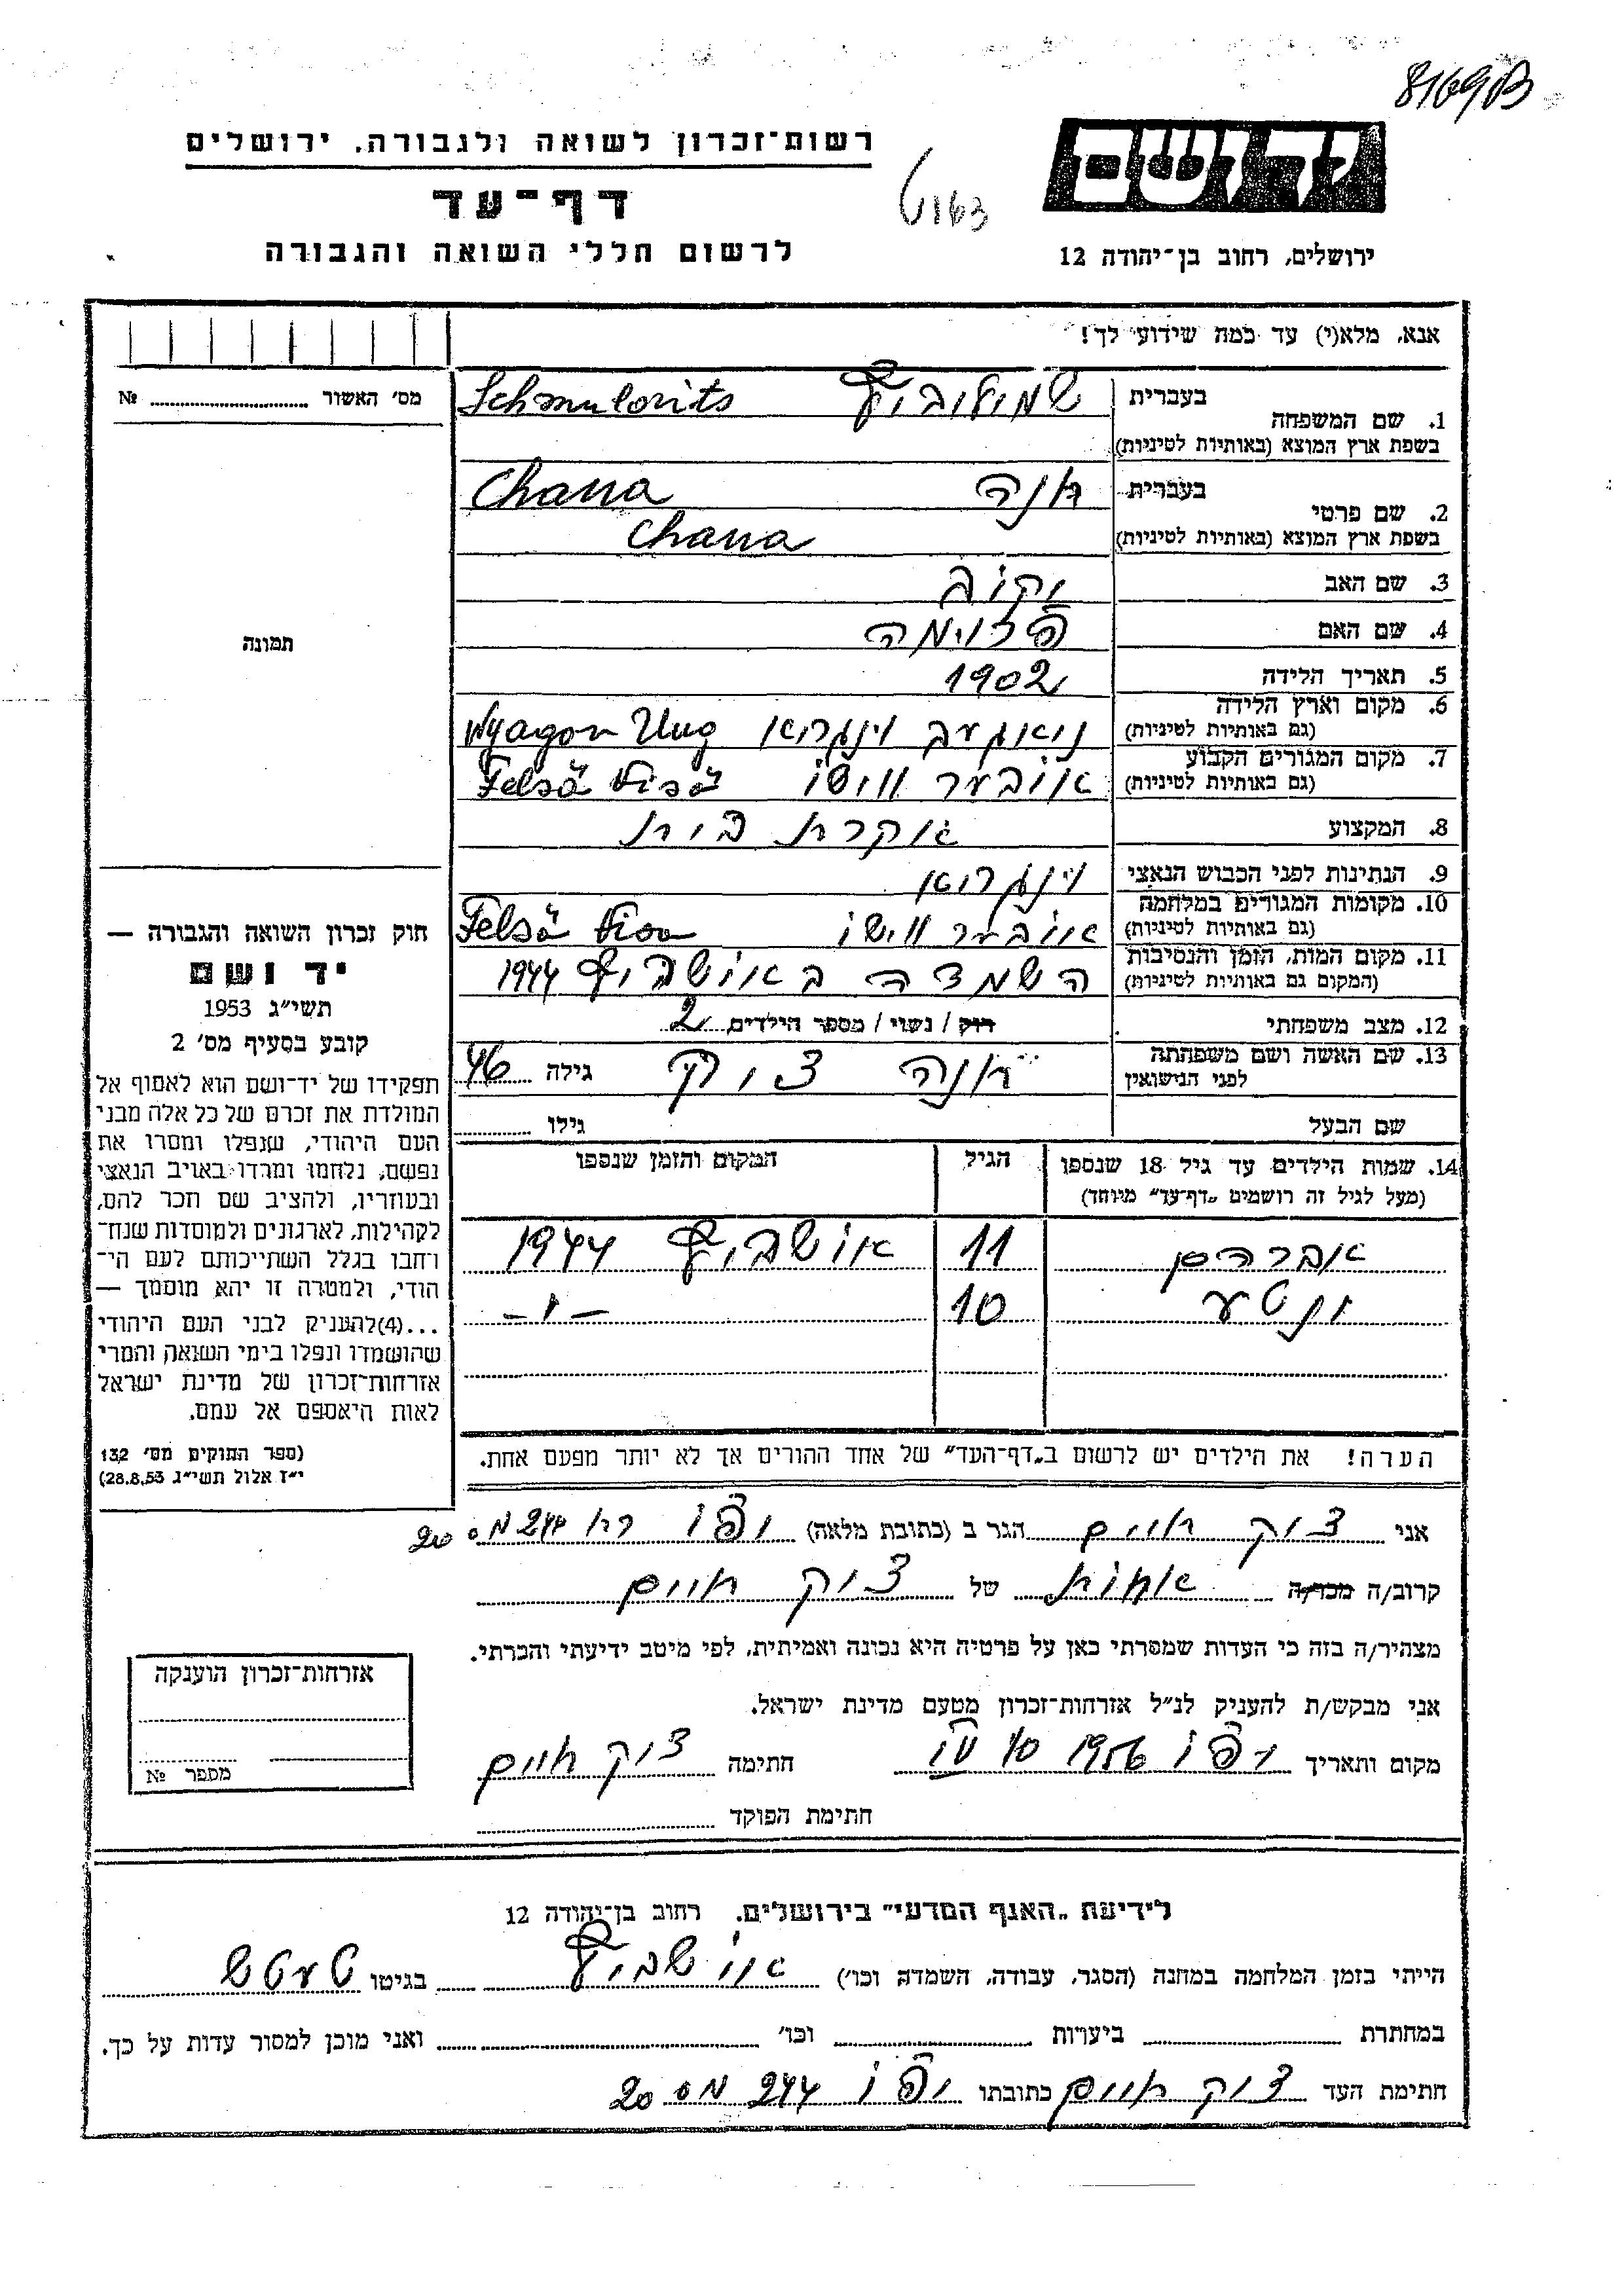 8169B
רשות־זכרון לשואה ולגבורה. ירושלים
יד ושם
דף־עד
לרשום חללי השואה והגבורה
ירושלים, רחוב בן־יהודה 12
אנא, מלא(י) עד כמה שידוע לך!
מס' האשור № 
בעברית שמולוביץ Schmulovits
1. שם המשפחה
בשפת ארץ המוצא (באותיות לטיניות)
בעברית חנה Chana
2. שם פרטי
בשפת ארץ המוצא (באותיות לטיניות) Chana
3. שם האב יקוב
4. שם האם
תמונה
5. תאריך הלידה 1902
6. מקום וארץ הלידה
(גם באותיות לטיניות) Ung
7. מקום המגורים הקבוע
(גם באותיות לטיניות) אובער ווישו Felső Viső
8. המקצוע עקרת בית
9. הנתינות לפני הכבוש הנאצי
10. מקומות המגורים במלחמה
(גם באותיות לטיניות) אובער ווישו Felső Viso
11. מקום המות, הזמן והנסיבות
(המקום גם באותיות לטיניות) השמדה באושביץ 1944
12. מצב משפחתי רווק / נשוי / מספר הילדים 2
13. שם האשה ושם משפחתה
לפני הנישואין חנה צויק גילה 46
שם הבעל גילו
חוק זכרון השואה והגבורה —
יד ושם
תשי״ג 1953
קובע בסעיף מס' 2
תפקידו של יד־ושם הוא לאסוף אל
המולדת את זכרם של כל אלה מבני
העם היהודי, שנפלו ומסרו את
נפשם, נלחמו ומרדו באויב הנאצי
ובעוזריו, ולהציב שם וזכר להם,
לקהילות, לארגונים ולמוסדות שנח־
רחבו בגלל השתייכותם לעם הי־
הודי, ולמטרה זו יהא מוסמך —
...(4) להעניק לבני העם היהודי
שהושמדו ונפלו בימי השואה והמרי
אזרחות־זכרון של מדינת ישראל
לאות היאספם אל עמם.
(ספר החוקים מס' 132
י״ז אלול תשי״ג 28.8.53)
14. שמות הילדים עד גיל 18 שנספו
(מעל לגיל זה רושמים „דף־עד״ מיוחד)
הגיל
המקום והזמן שנספו
אברהם 11 אושביץ 1944
10 –״–
הערה! את הילדים יש לרשום ב„דף־העד״ של אחד ההורים אך לא יותר מפעם אחת.
אני צויק חיים הגר ב (כתובת מלאה) יפו רח 244 מס 20
קרוב/ה מכר/ה אחות של צויק חיים
מצהיר/ה בזה כי העדות שמסרתי כאן על פרטיה היא נכונה ואמיתית, לפי מיטב ידיעתי והכרתי.
אני מבקש/ת להעניק לנ״ל אזרחות־זכרון מטעם מדינת ישראל.
מקום ותאריך יפו 1956 חתימה צויק חיים
חתימת הפוקד
אזרחות־זכרון הוענקה
מספר №
לידיעת „האגף המדעי״ בירושלים. רחוב בן־יהודה 12
הייתי בזמן המלחמה במחנה (הסגר, עבודה, השמדה וכו') אושביץ בגיטו
במחתרת ביערות וכו' ואני מוכן למסור עדות על כך.
חתימת העד צויק חיים כתובתו יפו 244 מס 20